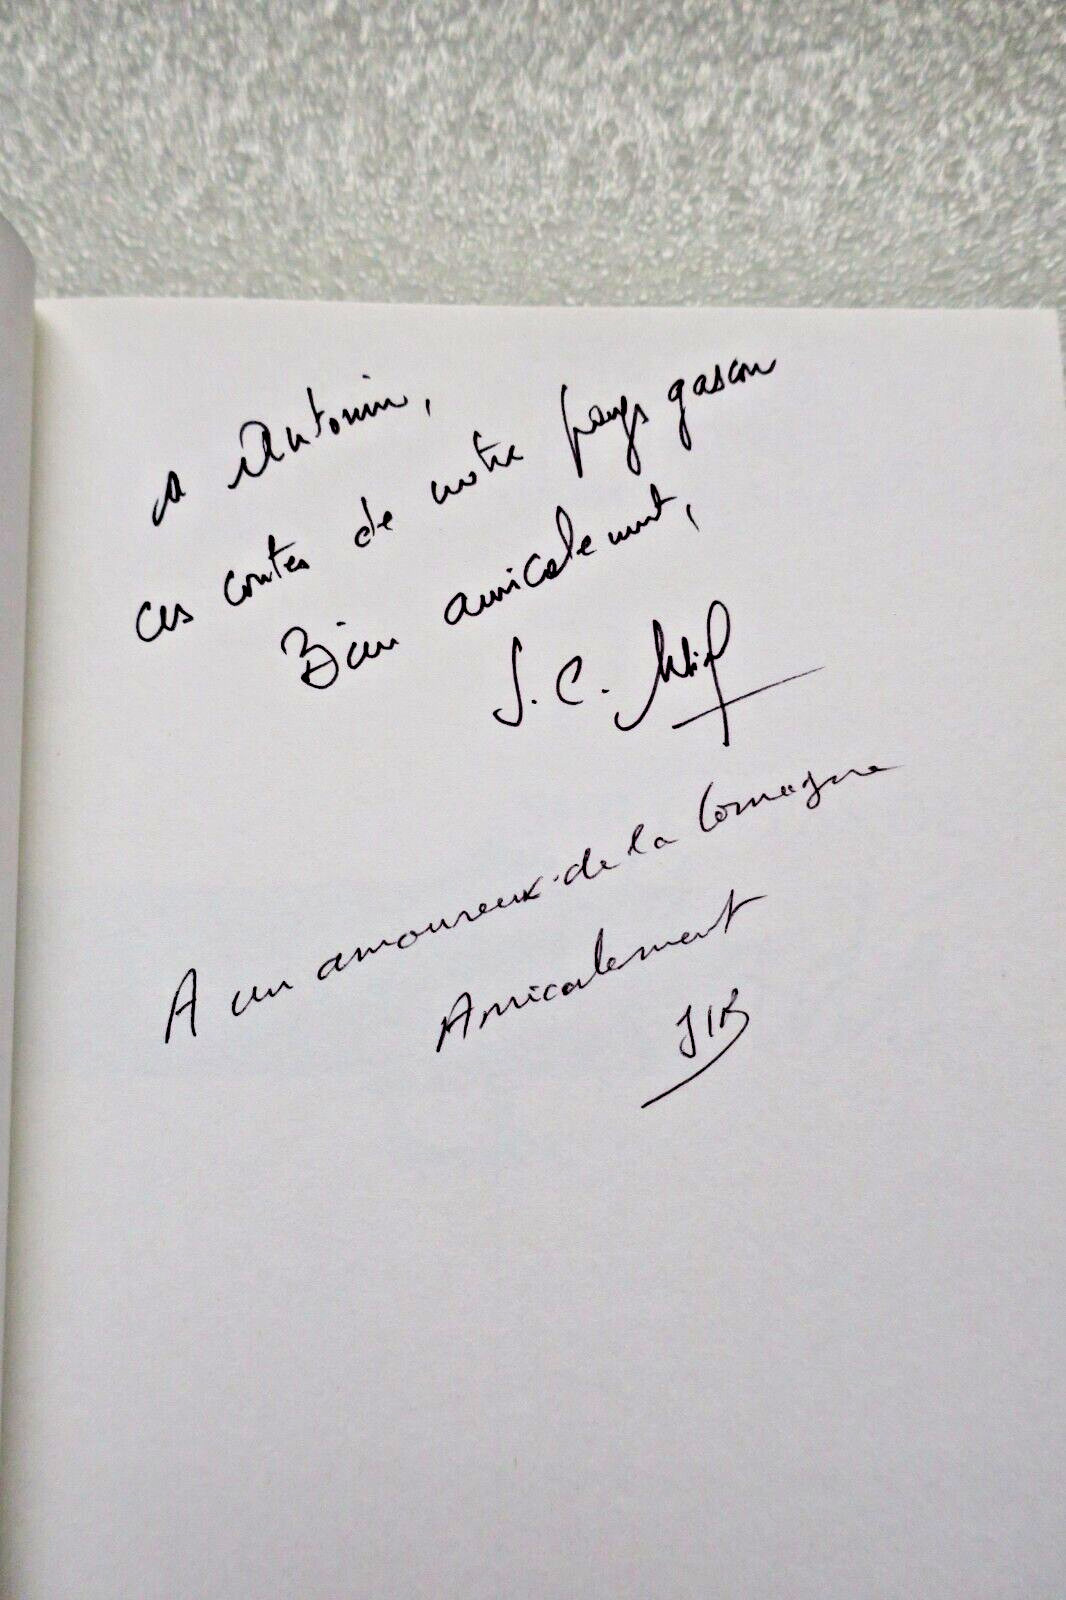 a Antonin,
ces contes de notre pays gascon
Bien amicalement,
J. C.
A un amoureux de la Lomagne
Amicalement